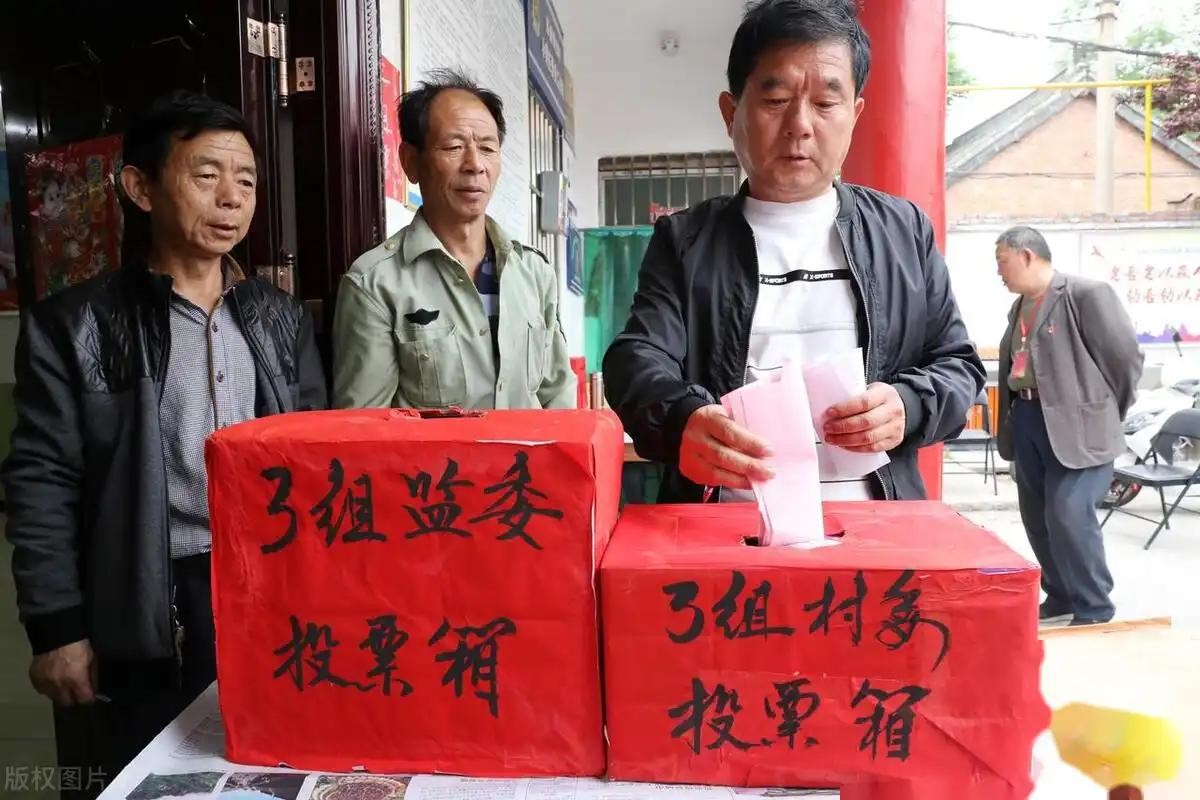 3组监委
投票箱
3组村委
投票箱
X-SPORTS
版权图片